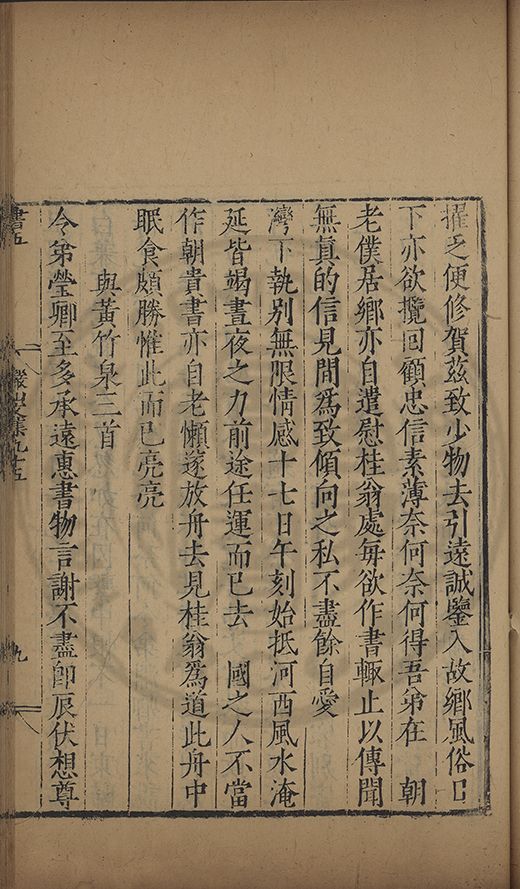 擢乏便修賀茲致少物去引遠誠鑒入故鄉風俗日
下亦欲攬回顧忠信素薄奈何奈何得吾弟在　朝
老僕居鄉亦自遣慰桂翁處每欲作書輒止以傳聞
無真的信見間為致傾向之私不盡餘自愛
灣下執別無限情感十七日午刻始抵河西風水淹
延皆竭晝夜之力前途任運而已去　國之人不當
作朝貴書亦自老懶遂放舟去見桂翁為道此舟中
眠食頗勝惟此而已亮亮
與黃竹泉三首
令弟瑩卿至多承遠惠書物言謝不盡即辰伏想尊
書五
九